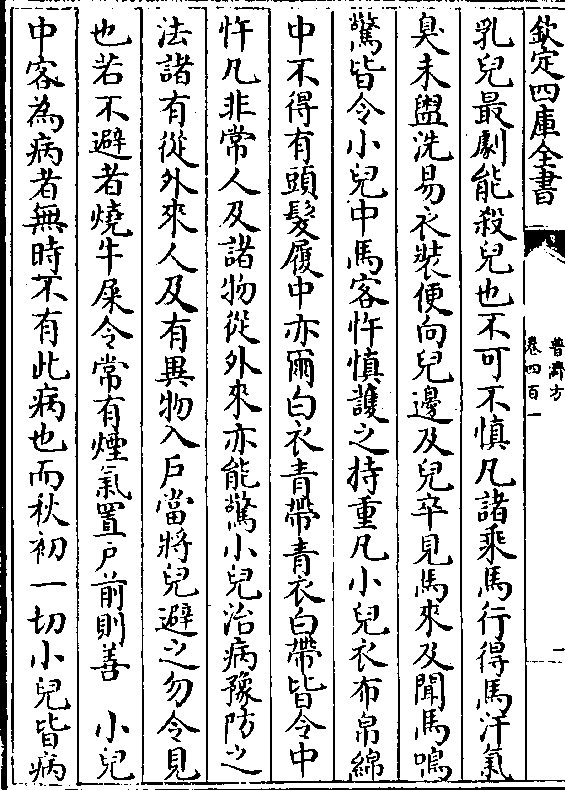 欽定四庫全書
普濟方
卷四百一
一
乳兒最劇能殺兒也不可不慎凡諸乘馬行得馬汗氣
臭未盥洗易衣裝便向兒邊及兒卒見馬來及聞馬鳴
驚皆令小兒中馬客忤慎護之持重凡小兒衣布帛綿
中不得有頭髮履中亦爾白衣青帶青衣白帶皆令中
忤凡非常人及諸物從外來亦能驚小兒治病豫防之
法諸有從外來人及有異物入戶當將兒避之勿令見
也若不避者燒牛屎令常有煙氣置戶前則善　小兒
中客為病者無時不有此病也而秋初一切小兒皆病